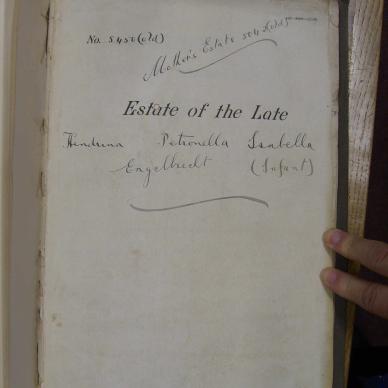 No. 5450 (old)
Mother's Estate 5042 (old)
Estate of the Late
Hendrina Petronella Isabella
Engelbrecht (Infant)